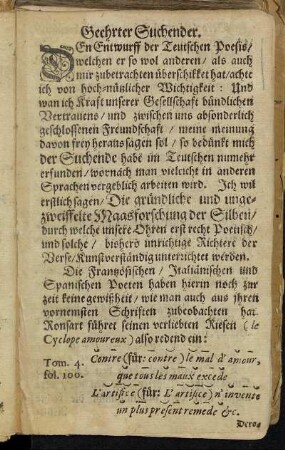 Geehrter Suchender.
DEn Entwurff der Teutschen Poesis/
welchen er so wol anderen/ als auch
mir zubetrachten überschikket hat/ achte
ich von hoch-nützlicher Wichtigkeit: Und
wan ich Kraft unserer Gesellschaft bündlichen
Vertrauens/ und zwischen uns absonderlich
geschlossenen Freundschaft/ meine meinung
davon frey heraus sagen sol/ so bedünkt mich
der Suchende habe im Teutschen numehr
erfunden/ wornach man vieleicht in anderen
Sprachen vergeblich arbeiten wird. Ich wil
erstlich sagen/ Die gründliche und unge-
zweiffelte Maasforschung der Silben/
durch welche unsere Ohren erst recht Poetisch/
und solche/ bishero unrichtige Richtere der
Verse/ Kunstverständig unterrichtet werden.
Die Französischen/ Italiänischen und
Spanischen Poeten haben hierin noch zur
zeit keine gewißheit/ wie man auch aus ihren
vornemsten Schriften zubeobachten hat
Ronsart führet seinen verliebten Riesen (le
Cyclope amoureux) also redend ein:
Tom. 4. Contre (für: contre) le mal d'amour,
fol. 100. que tous les maux excede
L'artifice (für: L'artifice) n'invente
un plus present remede &c.
Dero-